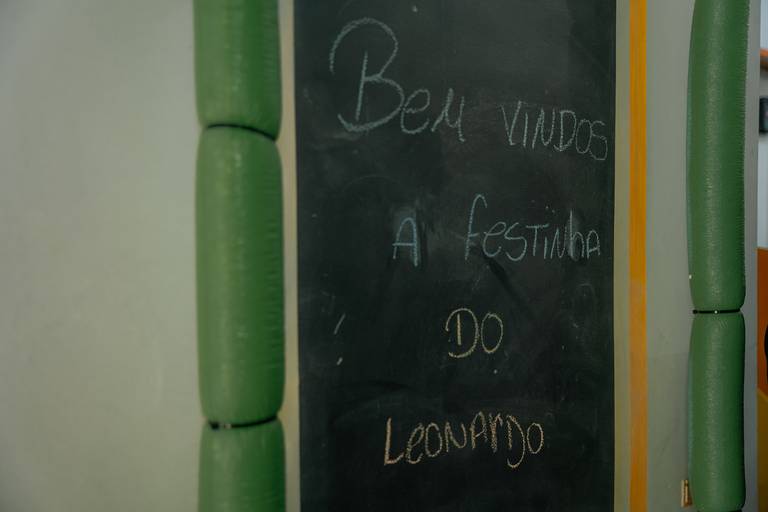 Bem VINDOS
A festinha
DO
LEONARDO